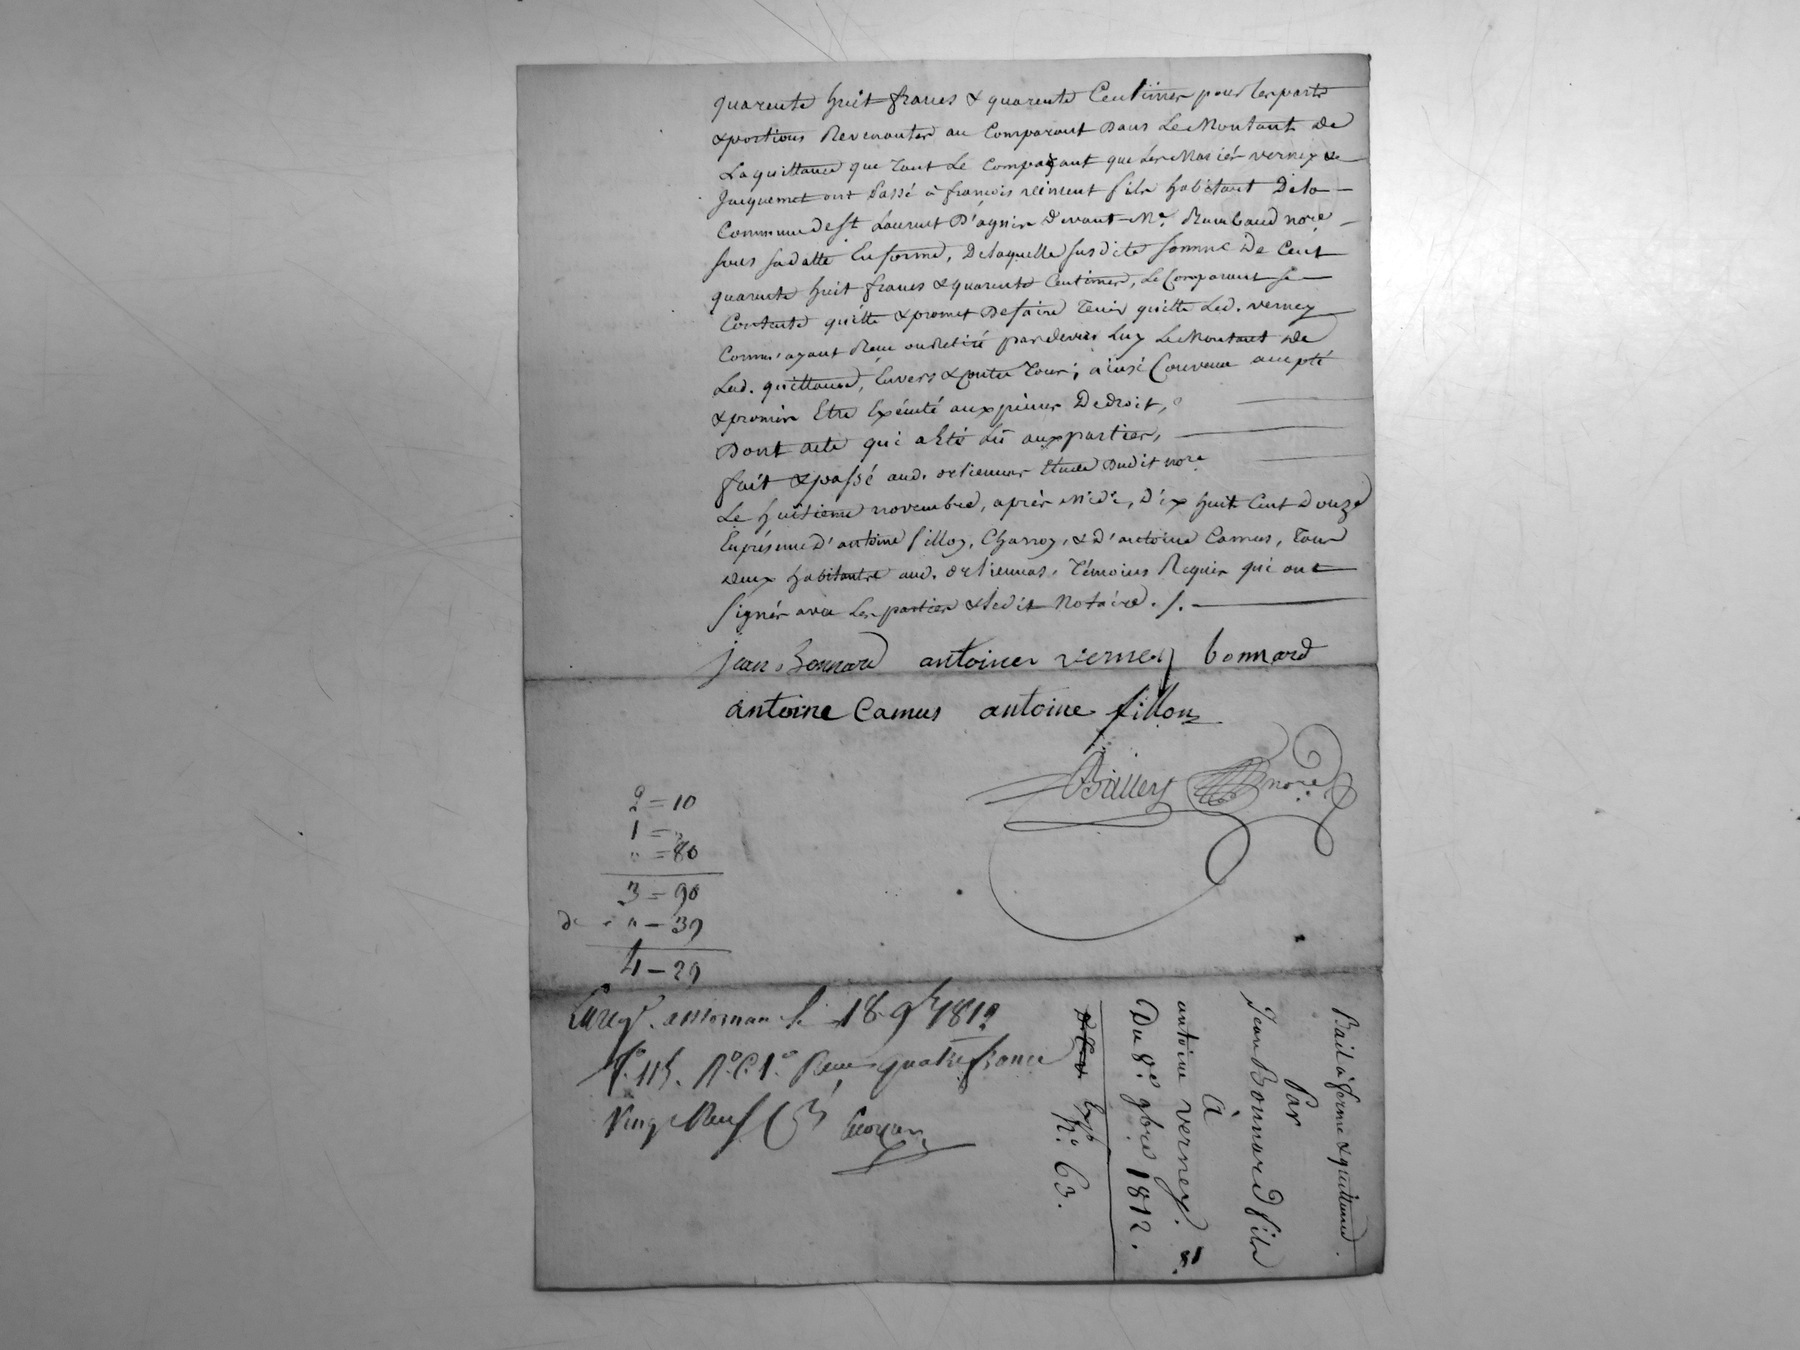 quarente huit francs & quarente Centimes pour les parts
& portions Revenantes au Comparant Dans Le Montant De
La quittance que Tant Le Comparant que Les Mariés verney &
Jacquemet ont Passé à françois vincent fils habitant Dela
Commune de st Laurent D'agnin Devant Me. Rambaud nore
sous sa datte En forme, De laquelle susdite somme De Cent
quarente huit francs & quarente Centimes, Le Comparant se
Contente quitte & promet De faire Tenir quitte Led. verney
Comme ayant Reçu ou Retiré par devers Luy Le Montant De
Lad. quittance, Envers & contre Tous; ainsi Convenu accepté
& promis Etre Exécuté aux peines De droit,
Dont acte qui a Eté Lû aux parties,
fait & passé aud. orlienas Etude Dudit nore
Le huitieme novembre, après Midi, Dix huit Cent Douze
En présence D'antoine fillon, Charron, & D'antoine Camus, Tous
Deux habitants aud. orlienas, Témoins Requis qui ont
signés avec Les parties & Ledit Notaire. /.
jean Bonnard antoine verney bonnard
antoine Camus antoine fillon
nore
2 = 10
1 = "
" = 80
3 = 90
de " - 39
4 - 29
Enregé. a Mornan le 18 9bre 1812
fo. 115. Ro. C. 1o. Reçu quatre francs
Vingt Neuf Cmes
Bail à ferme & quittance.
Par
Jean Bonnard fils
à
antoine verney.
Du 8e. 9bre 1812.
Exp
No. 63.